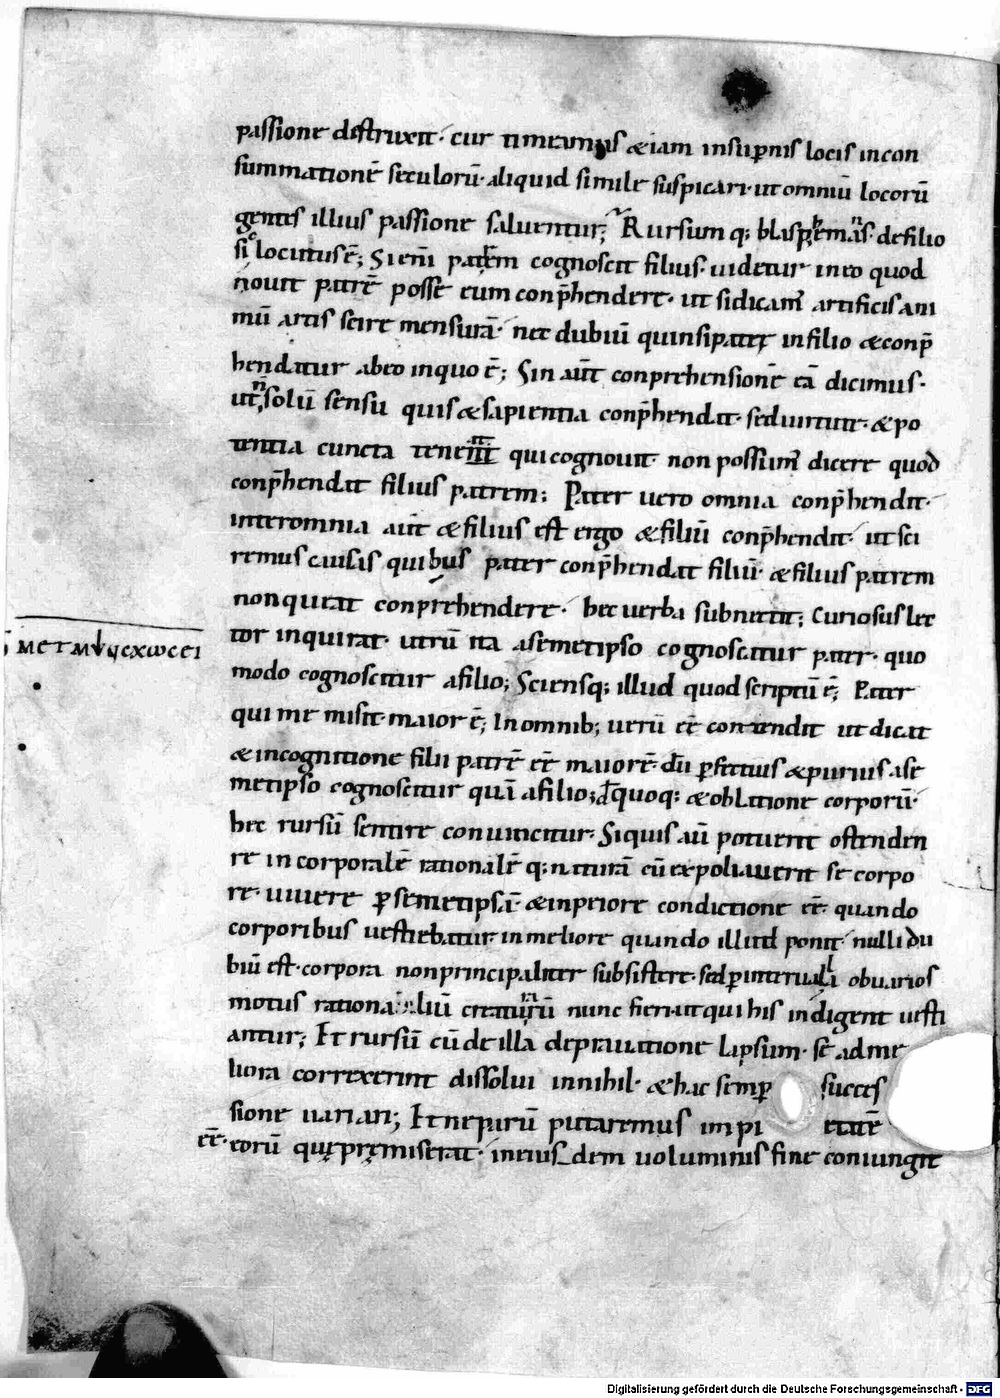 passione destruxit· cur timeamus &iam insup̄nis locis incon
summationē seculorū· aliquid simile suspicari· ut omniū locorū
gentes illius passione saluentur; Rursum q: blasphemans· de filio
sic locutus ē; Si enī patrem cognoscit filius· uidetur in eo quod
nouit patrē posse eum conp̄hendere· ut si dicam̄ artificis ani
mū artis scire mensurā· nec dubiū quin si pater in filio & conp̄
hendatur ab eo in quo ē; Sin aūt conprehensionē eā dicimus·
ut n̄ solū sensu quis & sapientia conp̄hendat· sed uirtute· & po
tentia cuncta teneat qui cognouit· non possum̄ dicere quod
conp̄hendat filius patrem; Pater uero omnia conp̄hendit·
inter omnia aūt & filius est ergo & filiū conp̄hendit· ut sci
remus causis quibus pater conp̄hendat filiū· & filius patrem
non queat conprehendere· hec uerba subnectit; Curiosus lec
tor inquirat· utrū ita a semetipso cognoscatur pater· quo
modo cognoscitur a filio; Sciensq; illud quod scriptū ē; Pater
qui me misit maior ē; In omnib; uerū eē contendit ut dicat
& in cognitione filii patrē eē maiorē· dū p̄fectius & purius a se
metipso cognoscitur quā a filio; quoq: & oblatione corporū·
hec rursū sentire conuincitur· Siquis aū potuerit ostenden
re incorporalē rationalē q: naturā cū expoliauerit se corpo
re· uiuere p̄ semetipsā· & in peiore condictione eē· quando
corporibus uestiebatur· in meliore quando illud ponit· nulli du
biū est· corpora non principaliter subsistere· sed p̄ interualla ob uarios
motus rationaliū creaturarū nunc fieri· ut qui his indigent uesti
antur; Et rursū cū de illa deprauatione lapsum· se ad me
liora correxerint dissolui in nihil· & hac semp̄ succes
sione uariari; Et ne parū putaremus impi etatē
eē· eorū quę pręmiserat· in eius dem uoluminis fine coniungit